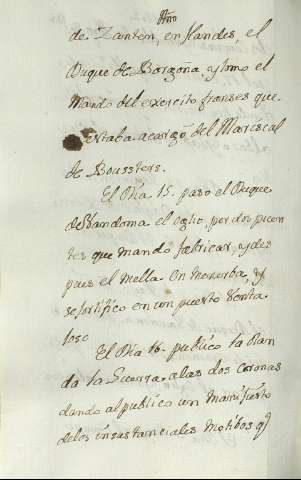 Año
de Zanten, en flandes, el
Duque de Borgoña, y tomo el
Mando del exercito franses que
estaba acargo del Mariscal
de Boussters.
El Dia 15. paso el Duque
de Vandoma el oglio, por dos puen
tes que mando fabricar, y des
pues el mella. En Menerba, y
sefortifico en un puerto Venta
loso
El Dia 16. publico la olan
da la Guerra, alas dos coronas
dando al publico un manifiesto
delos insustanciales Motibos q̄